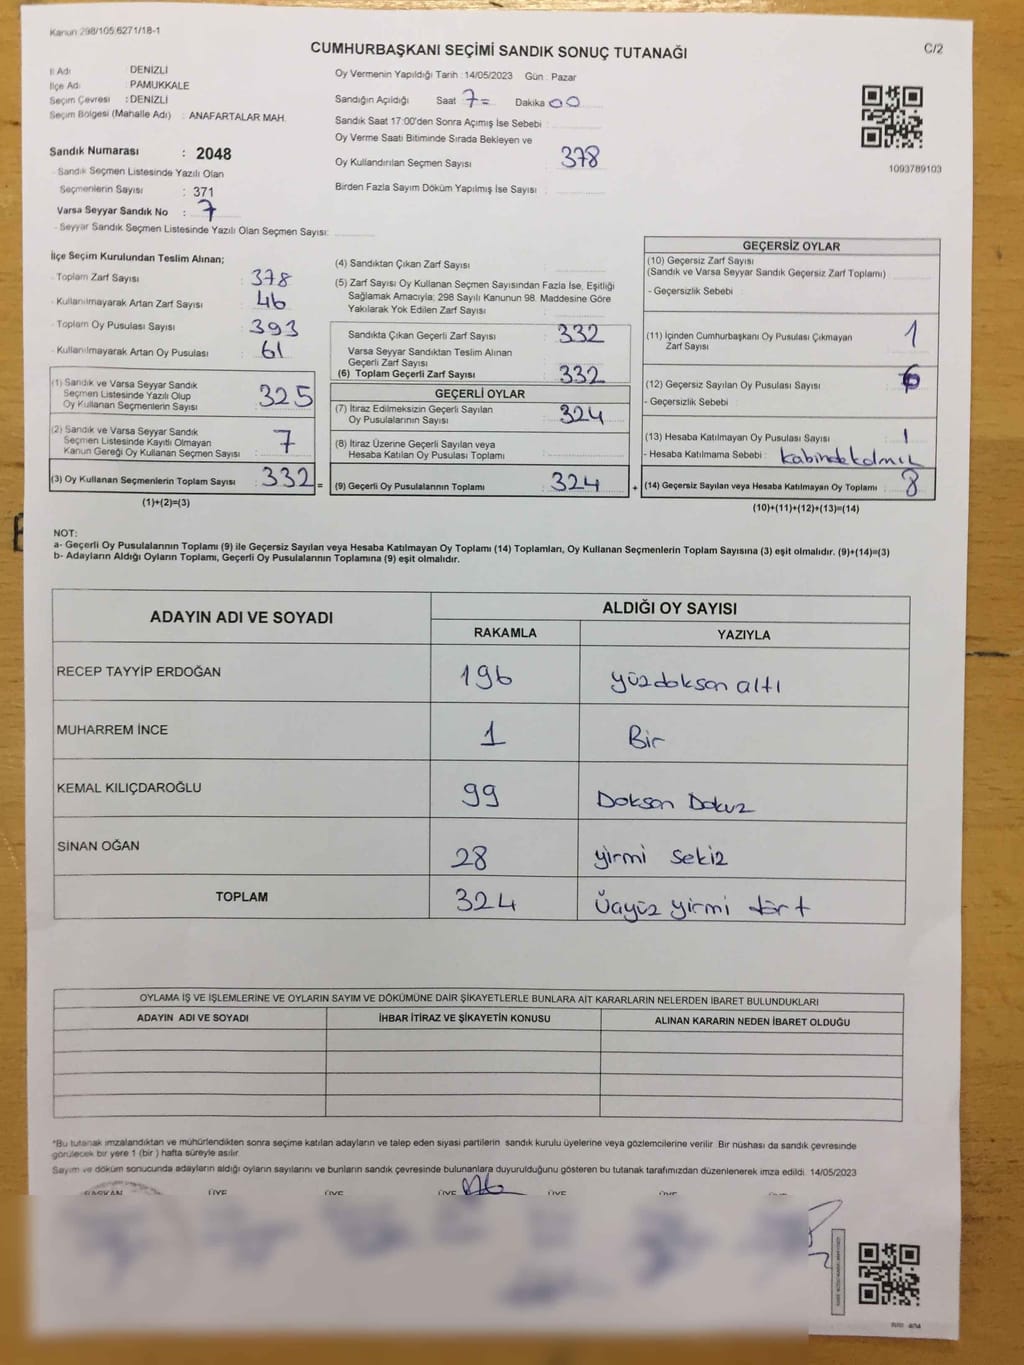 Kanun:298/105;6271/18-1
CUMHURBAŞKANI SEÇİMİ SANDIK SONUÇ TUTANAĞI
C/2
İl Adı : DENİZLİ
İlçe Adı : PAMUKKALE
Seçim Çevresi : DENİZLİ
Seçim Bölgesi (Mahalle Adı) : ANAFARTALAR MAH.
Sandık Numarası : 2048
- Sandık Seçmen Listesinde Yazılı Olan
Seçmenlerin Sayısı : 371
Varsa Seyyar Sandık No : 7
- Seyyar Sandık Seçmen Listesinde Yazılı Olan Seçmen Sayısı:
Oy Vermenin Yapıldığı Tarih : 14/05/2023 Gün : Pazar
Sandığın Açıldığı Saat 7= Dakika 00
Sandık Saat 17:00'den Sonra Açımış İse Sebebi :
Oy Verme Saati Bitiminde Sırada Bekleyen ve
Oy Kullandırılan Seçmen Sayısı : 378
Birden Fazla Sayım Döküm Yapılmış İse Sayısı :
1093789103
İlçe Seçim Kurulundan Teslim Alınan;
- Toplam Zarf Sayısı : 378
- Kullanılmayarak Artan Zarf Sayısı : 46
- Toplam Oy Pusulası Sayısı : 393
- Kullanılmayarak Artan Oy Pusulası : 61
(1) Sandık ve Varsa Seyyar Sandık
Seçmen Listesinde Yazılı Olup
Oy Kullanan Seçmenlerin Sayısı : 325
(2) Sandık ve Varsa Seyyar Sandık
Seçmen Listesinde Kayıtlı Olmayan
Kanun Gereği Oy Kullanan Seçmen Sayısı : 7
(3) Oy Kullanan Seçmenlerin Toplam Sayısı : 332 =
(1)+(2)=(3)
(4) Sandıktan Çıkan Zarf Sayısı :
(5) Zarf Sayısı Oy Kullanan Seçmen Sayısından Fazla İse, Eşitliği
Sağlamak Amacıyla; 298 Sayılı Kanunun 98. Maddesine Göre
Yakılarak Yok Edilen Zarf Sayısı :
Sandıkta Çıkan Geçerli Zarf Sayısı : 332
Varsa Seyyar Sandıktan Teslim Alınan
Geçerli Zarf Sayısı :
(6) Toplam Geçerli Zarf Sayısı : 332
GEÇERLİ OYLAR
(7) İtiraz Edilmeksizin Geçerli Sayılan
Oy Pusulalarının Sayısı : 324
(8) İtiraz Üzerine Geçerli Sayılan veya
Hesaba Katılan Oy Pusulası Toplamı :
(9) Geçerli Oy Pusulalarının Toplamı : 324 +
GEÇERSİZ OYLAR
(10) Geçersiz Zarf Sayısı
(Sandık ve Varsa Seyyar Sandık Geçersiz Zarf Toplamı) :
- Geçersizlik Sebebi :
(11) İçinden Cumhurbaşkanı Oy Pusulası Çıkmayan
Zarf Sayısı : 1
(12) Geçersiz Sayılan Oy Pusulası Sayısı : 6
- Geçersizlik Sebebi :
(13) Hesaba Katılmayan Oy Pusulası Sayısı : 1
- Hesaba Katılmama Sebebi : kabinde kalmış
(14) Geçersiz Sayılan veya Hesaba Katılmayan Oy Toplamı : 8
(10)+(11)+(12)+(13)=(14)
NOT:
a- Geçerli Oy Pusulalarının Toplamı (9) ile Geçersiz Sayılan veya Hesaba Katılmayan Oy Toplamı (14) Toplamları, Oy Kullanan Seçmenlerin Toplam Sayısına (3) eşit olmalıdır. (9)+(14)=(3)
b- Adayların Aldığı Oyların Toplamı, Geçerli Oy Pusulalarının Toplamına (9) eşit olmalıdır.
ADAYIN ADI VE SOYADI
ALDIĞI OY SAYISI
RAKAMLA YAZIYLA
RECEP TAYYİP ERDOĞAN 196 yüzdoksan altı
MUHARREM İNCE 1 Bir
KEMAL KILIÇDAROĞLU 99 Doksan Dokuz
SİNAN OĞAN 28 yirmi sekiz
TOPLAM 324 Üçyüz yirmi dört
OYLAMA İŞ VE İŞLEMLERİNE VE OYLARIN SAYIM VE DÖKÜMÜNE DAİR ŞİKAYETLERLE BUNLARA AİT KARARLARIN NELERDEN İBARET BULUNDUKLARI
ADAYIN ADI VE SOYADI İHBAR İTİRAZ VE ŞİKAYETİN KONUSU ALINAN KARARIN NEDEN İBARET OLDUĞU
*Bu tutanak imzalandıktan ve mühürlendikten sonra seçime katılan adayların ve talep eden siyasi partilerin sandık kurulu üyelerine veya gözlemcilerine verilir. Bir nüshası da sandık çevresinde
görülecek bir yere 1 (bir ) hafta süreyle asılır.
Sayım ve döküm sonucunda adayların aldığı oyların sayılarını ve bunların sandık çevresinde bulunanlara duyurulduğunu gösteren bu tutanak tarafımızdan düzenlenerek imza edildi. 14/05/2023
BAŞKAN ÜYE ÜYE ÜYE ÜYE ÜYE ÜYE